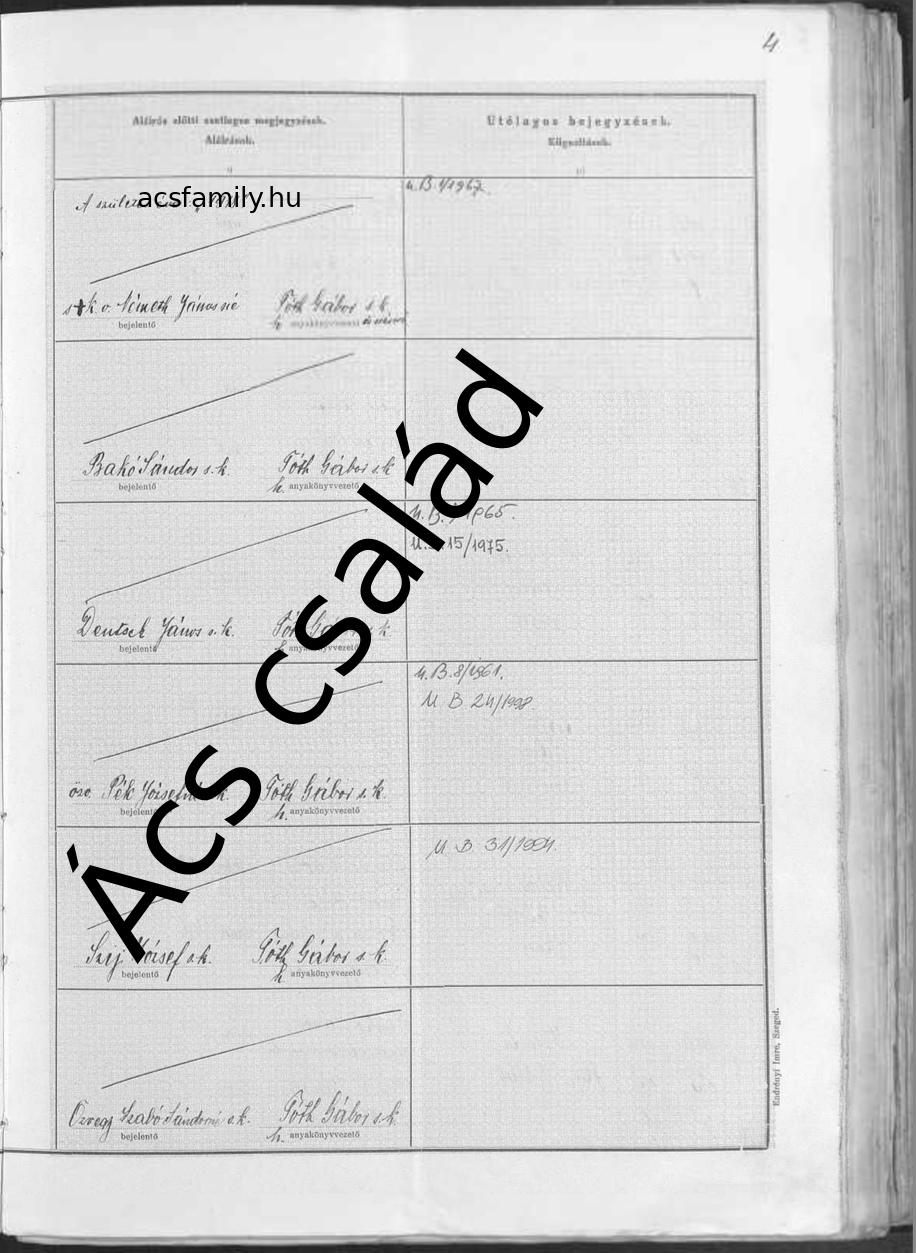 4
Aláírás előtti esetleges megjegyzések.
Aláírások.
Utólagos bejegyzések.
Kiigazítások.
acsfamily.hu
A
u.B. 1/1967.
s+k. o. Németh Jánosné
Tóth Gábor s.k.
bejelentő
h. anyakönyvvezető
Bakó Sándor s.k.
Tóth Gábor s.k.
bejelentő
h. anyakönyvvezető
1965.
15/1975.
Deutsch János s.k.
bejelentő
anyakönyvvezető
u.B. 8/1961.
U B 24/1998.
özv. Pék Józsefné
Tóth Gábor s.k.
bejelentő
h. anyakönyvvezető
U B 31/1994.
Szíj József s.k.
Tóth Gábor s.k.
bejelentő
h. anyakönyvvezető
Özvegy Szabó Sándorné s.k.
Tóth Gábor s.k.
bejelentő
h. anyakönyvvezető
Endrényi Imre, Szeged.
Ács család